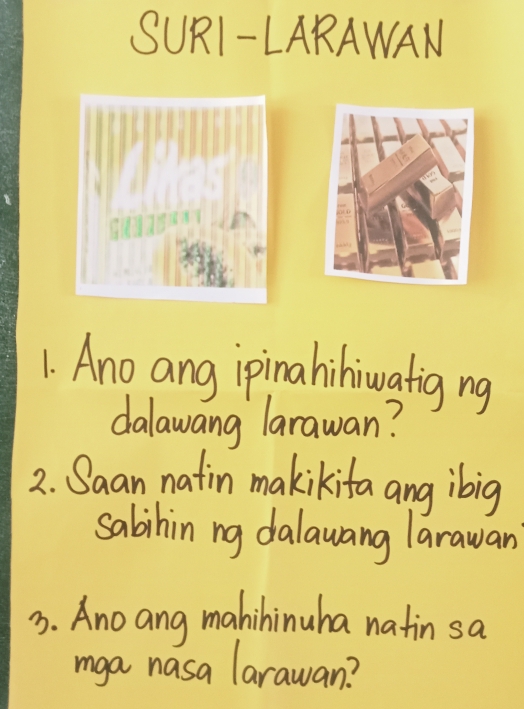 SURI-LARAWAN
Likas
1. Ano ang ipinahihiwatig ng
dalawang larawan?
2. Saan natin makikita ang ibig
sabihin ng dalawang larawan
3. Ano ang mahihinuha natin sa
mga nasa larawan?